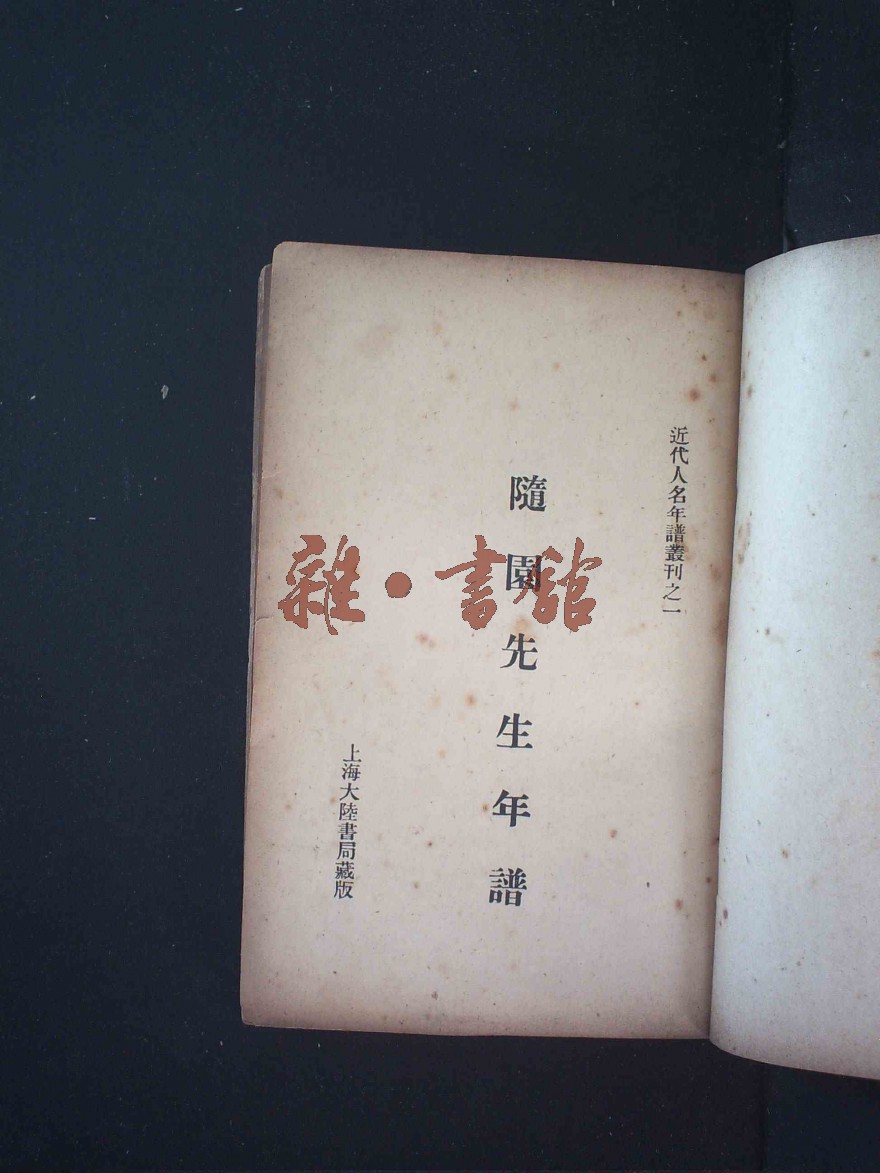 近代人名年譜叢刊之一
隨園先生年譜
上海大陸書局藏版
雜·書館